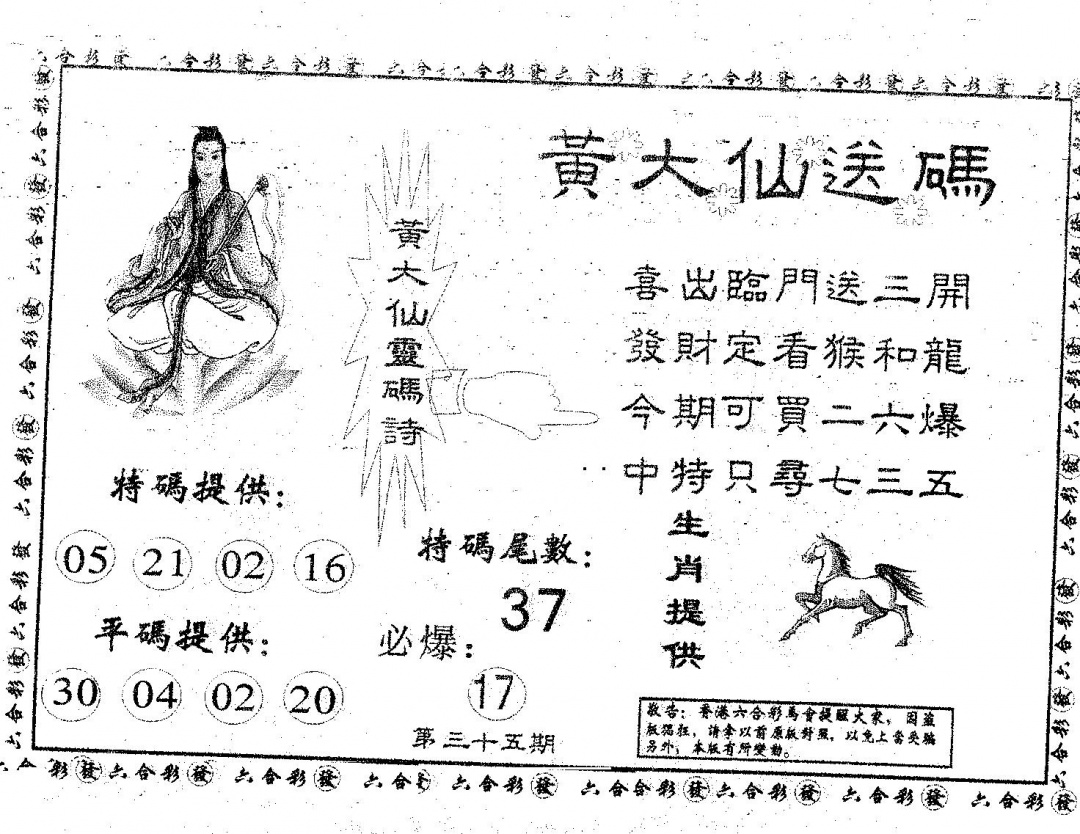 六合彩 發 六合彩 發 六合彩 發 六合彩 發 六合彩 發 六合彩 發 六合彩 發
黃大仙送碼
黃大仙靈碼詩
喜出臨門送三開
發財定看猴和龍
今期可買二六爆
中特只尋七三五
特碼提供：
05 21 02 16
平碼提供：
30 04 02 20
特碼尾數：
37
必爆：
17
第三十五期
生肖提供
敬告：香港六合彩馬會提醒大家，因盜
版猖狂，請拿以前原版對照，以免上當受騙
另外，本版有所變動。
六合彩 發 六合彩 發 六合彩 發 六合彩 六合彩 發 六合合彩 發 六合彩 發 六合彩 發 六合彩 發